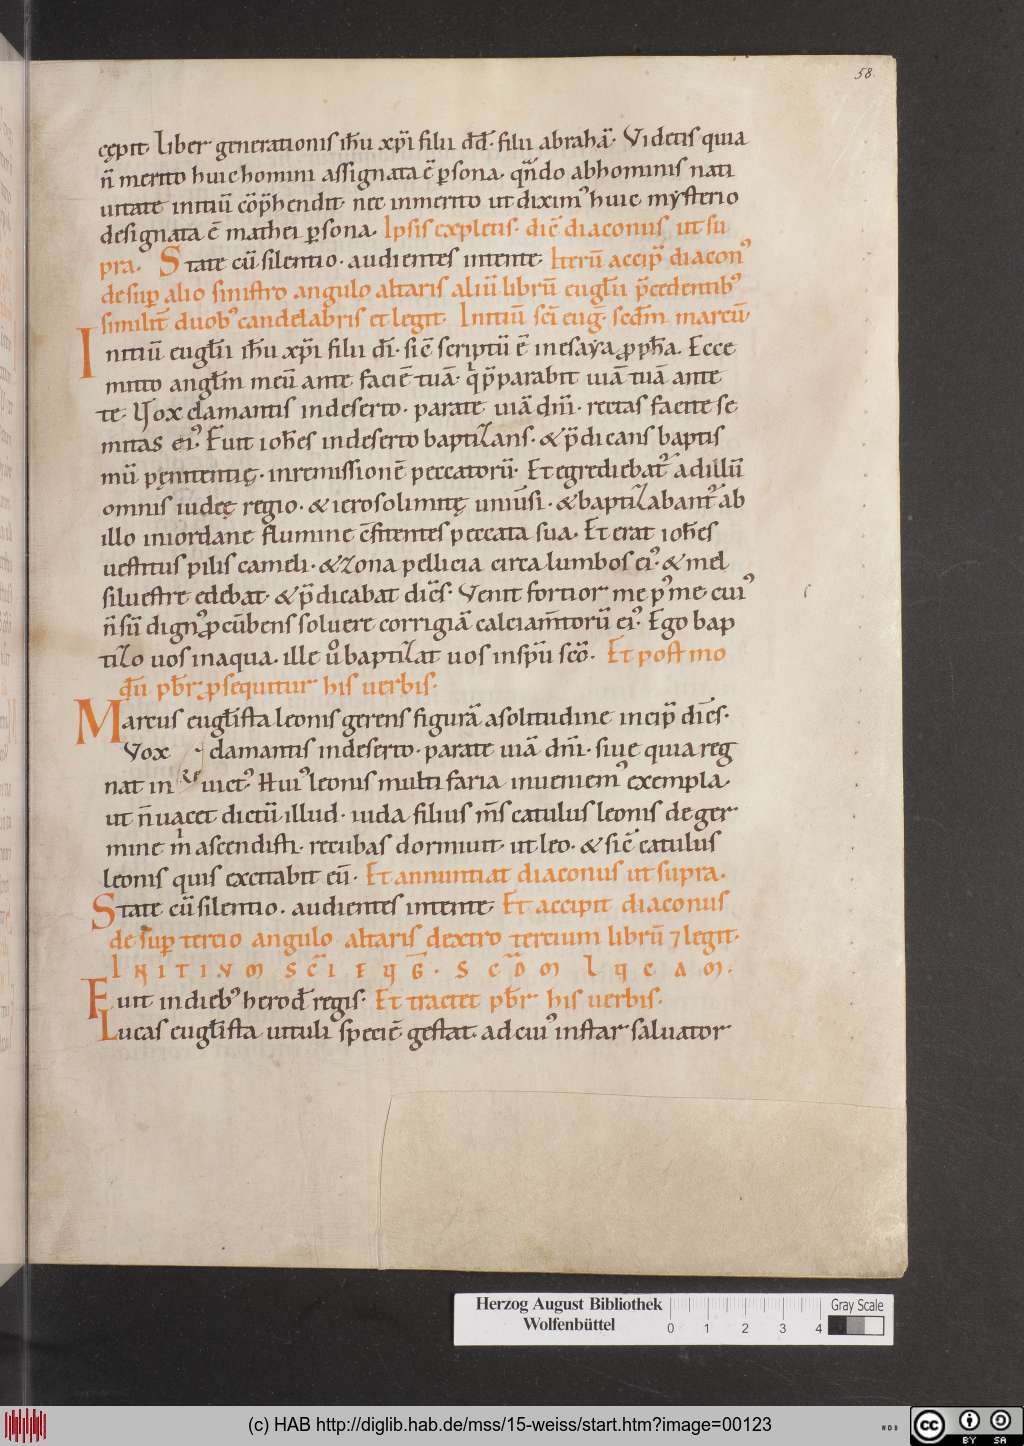 58.
cępit. Liber generationis ihū xp̄i filii dd̄. filii abrahā. Videtis quia
n̄ merito huic homini assignata ē p̱sona. qn̄do ab hominis nati
uitate initiū cōp̄hendit. nec inmerito ut diximꝰ huic mẏsterio
designata ē mathei p̱sona. Ipsis expletis. dic̄ diaconus ut su
pra. State cū silentio. audientes intente. Iterū accip̄ diaconꝰ
de sup̱ alio sinistro angulo altaris aliū librū eugl̄ii p̄cedentibꝰ
similit̄ duobꝰ candelabris et legit. Initiū sc̄i euḡ. sed̄m marcū.
Initiū eugl̄ii ihū xp̄i filii dī. sic̄ scriptū ē in esaẏa ꝓph̄a. Ecce
mitto angl̄m meū ante faciē tuā. qͥ p̄parabit uiā tuā ante
te. Vox clamantis in deserto. parate uiā dn̄i. rectas facite se
mitas eiꝰ. Fuit ioh̄es in deserto baptizans. & p̄dicans baptis
mū pęnitentię. in remissionē peccatorū. Et egrediebat᷑ ad illū
omnis iudeę regio. & ierosolimitę uniūsi. & baptizabant᷑ ab
illo in iordane flumine c̄fitentes peccata sua. Et erat ioh̄es
uestitus pilis cameli. & zona pellicia circa lumbos eiꝰ. & mel
siluestre edebat. & p̄dicabat dic̄s. Venit fortior me pꝰ me cuiꝰ
n̄ sū dignꝰ ꝓcūbens soluere corrigiā calciam̄torū eiꝰ. Ego bap
tizo uos in aqua. ille ů baptizat uos in sp̄u sc̄o. Et post mo
dū pb̄r ꝓsequitur his uerbis.
Marcus eugl̄ista leonis gerens figurā a solitudine incip̄ dic̄s.
Vox clamantis in deserto. parate uiā dn̄i. siue quia reg
nat in uictꝰ. Huiꝰ leonis multifaria inueniemꝰ exempla.
ut n̄ uacet dictū illud. iuda filius m̄s catulus leonis de ger
mine mͥ ascendisti. recubas dormiuit. ut leo. & sic̄ catulus
leonis quis excitabit eū. Et annuntiat diaconus ut supra.
State cū silentio. audientes intente. Et accipit diaconus
de sup̱ tertio angulo altaris dextro tertium librū ⁊ legit.
INITIVM SC̄I EVḠ. SCD̄M LVCAM.
Fuit in diebꝰ herod̄ regis. Et tractet pb̄r his uerbis.
Lucas eugl̄ista uituli speciē gestat. ad cuiꝰ instar saluator
Herzog August Bibliothek
Wolfenbüttel
0 1 2 3 4
Gray Scale
(c) HAB http://diglib.hab.de/mss/15-weiss/start.htm?image=00123
cc BY SA